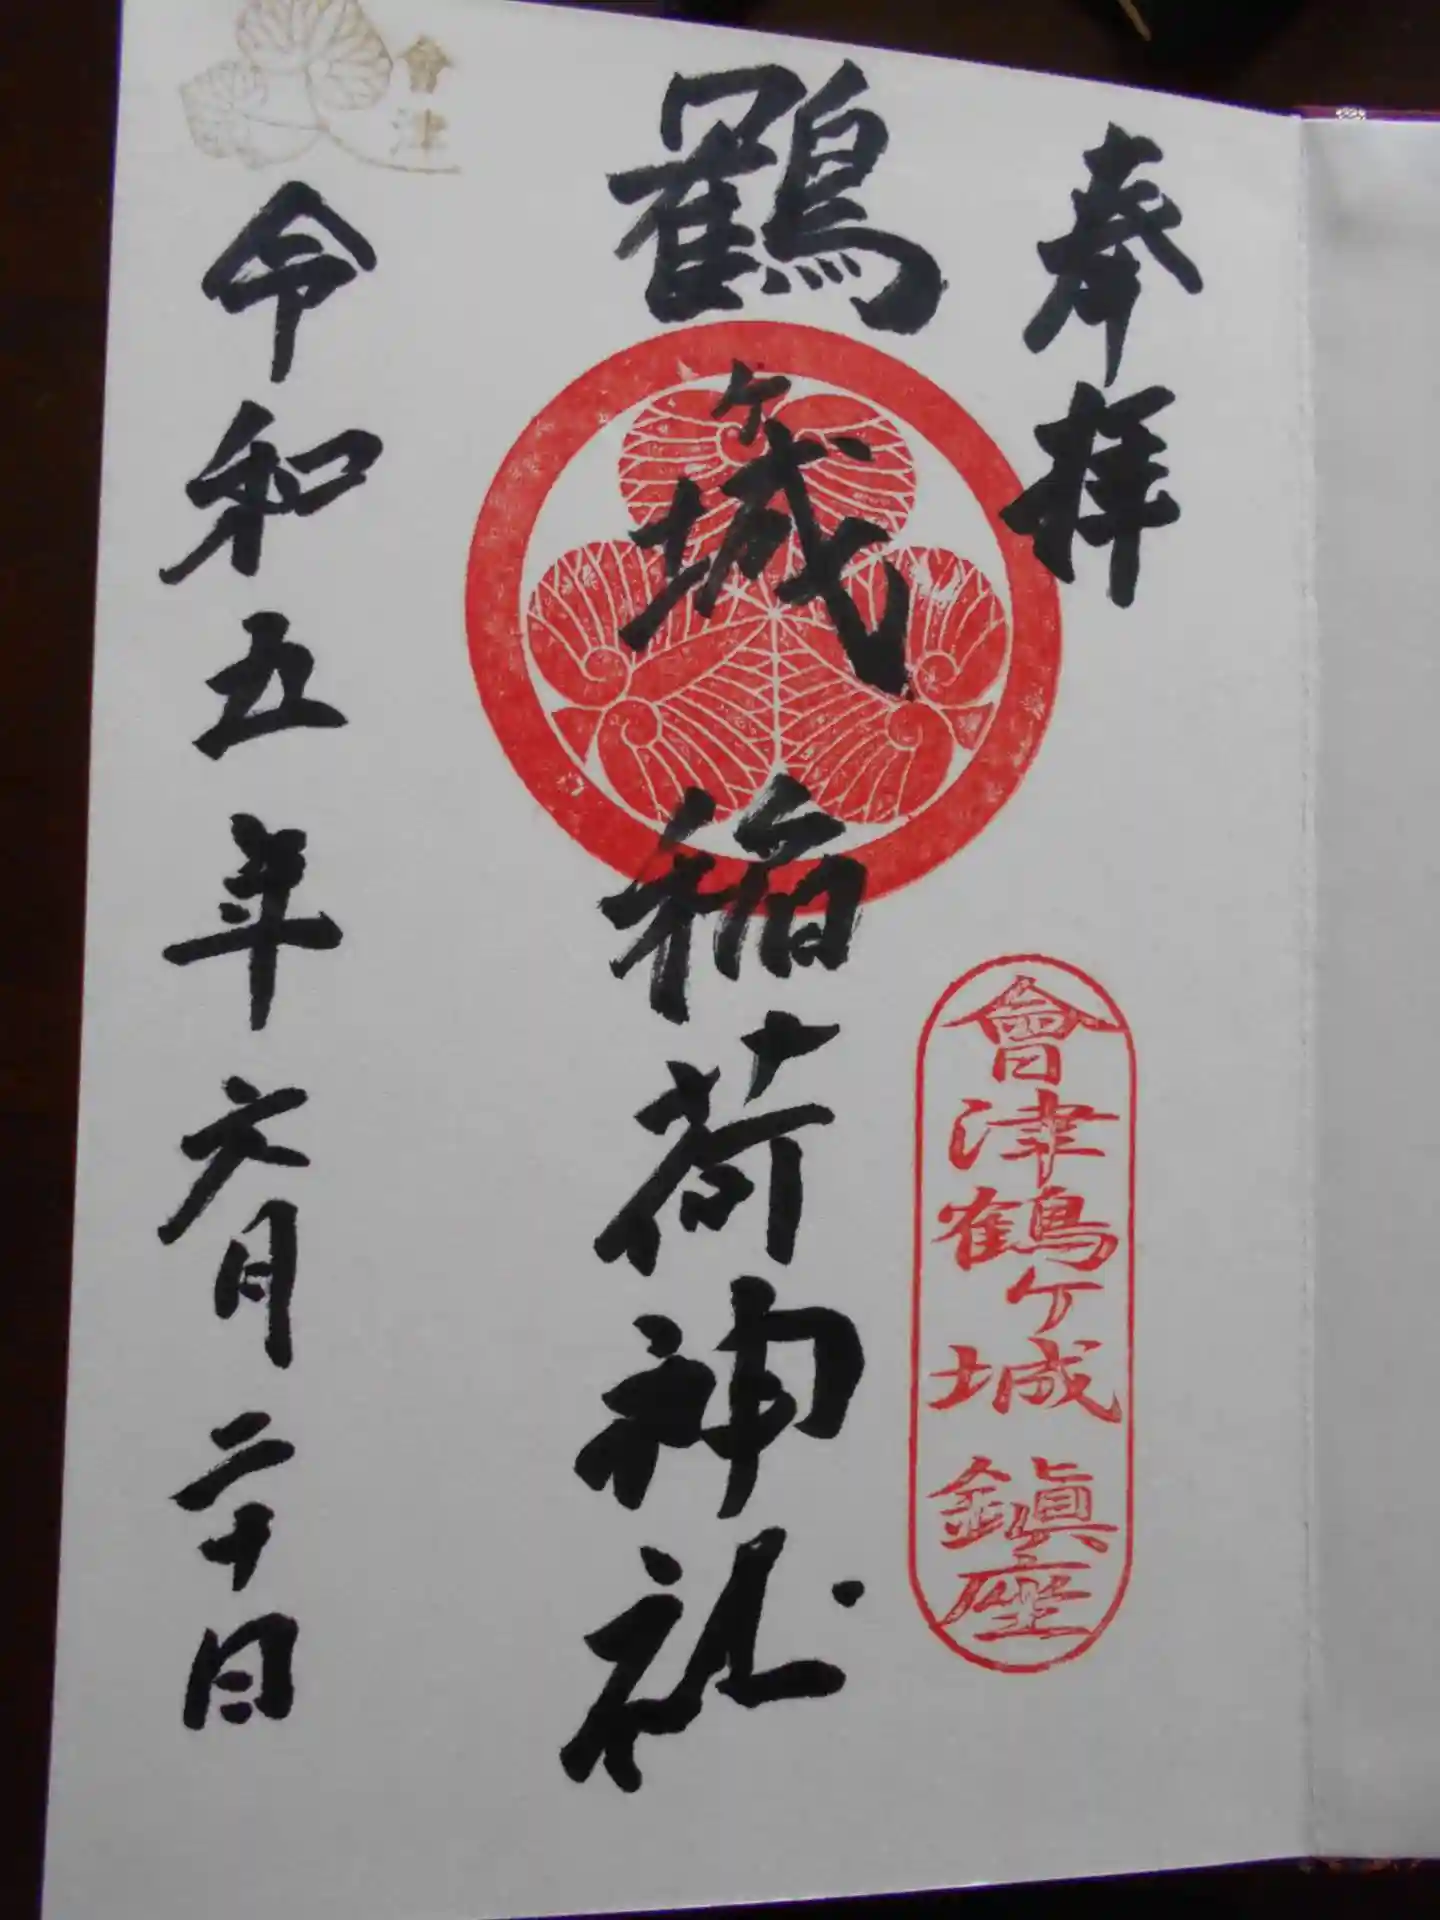 奉拝
會津鶴ヶ城鎮座
鶴ヶ城稲荷神社
令和五年六月二十日
會津